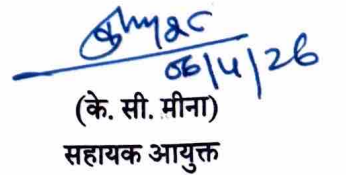 06/4/26
(के. सी. मीना)
सहायक आयुक्त